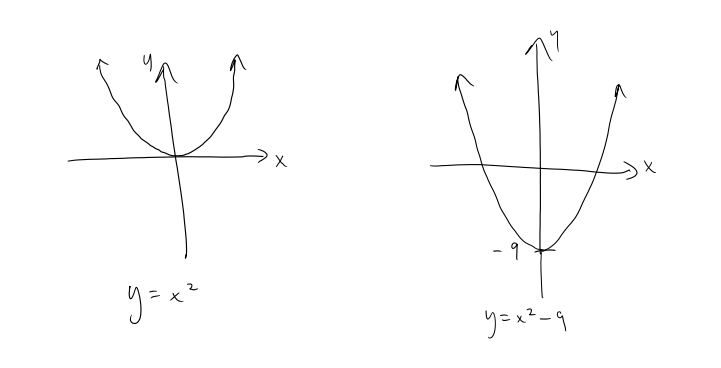 y
x
y = x²
y
x
-9
y = x² - 9